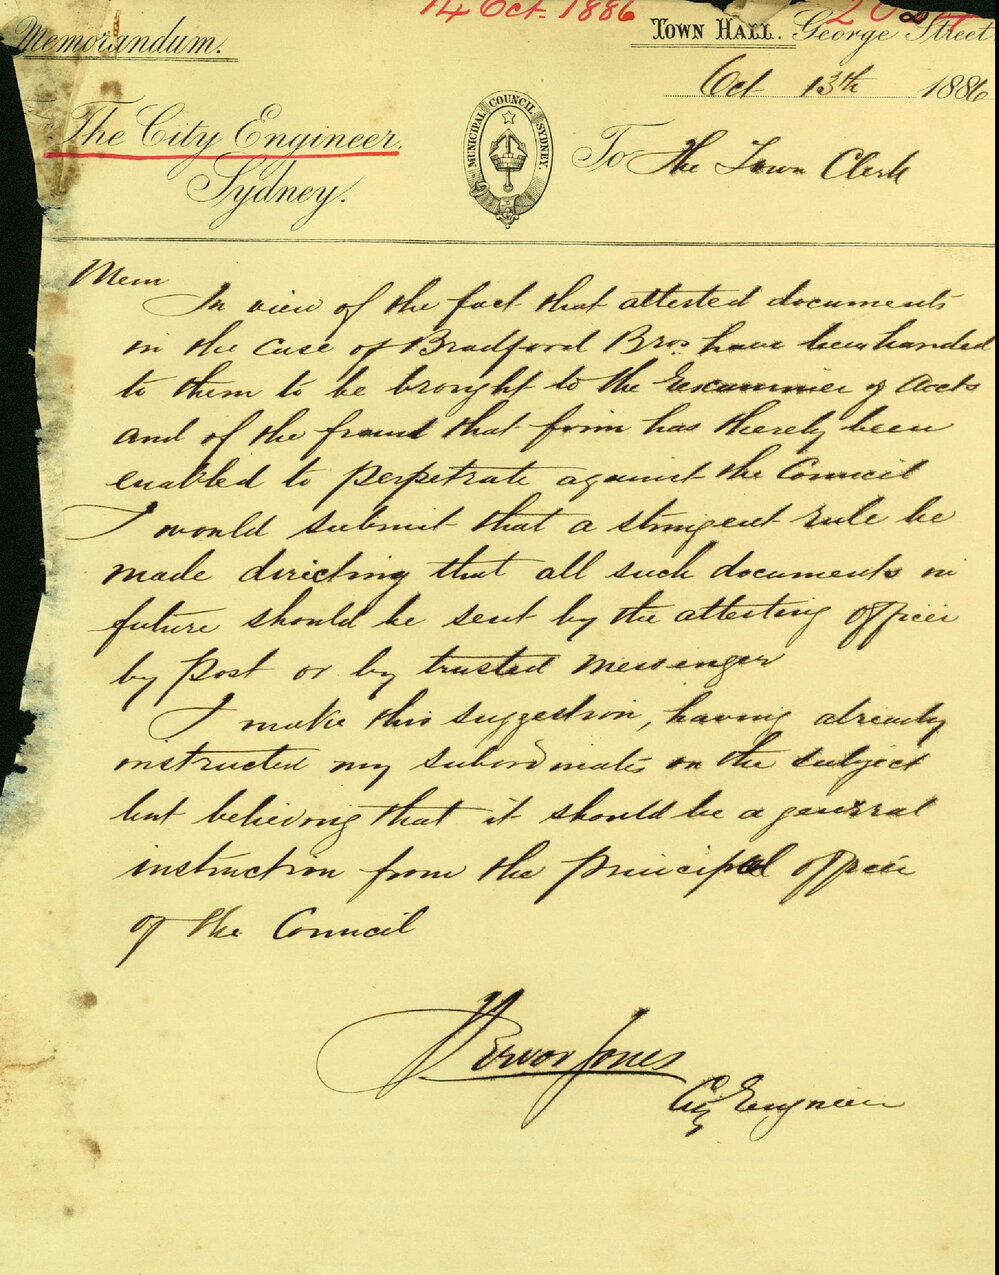 14 Oct. 1886
Memorandum.
TOWN HALL. George Street
Oct 13th 1886
The City Engineer
Sydney.
MUNICIPAL COUNCIL SYDNEY.
To The Town Clerk
Mem
In view of the fact that attested documents
in the case of Bradford Bros have been handed
to them to be brought to the Examiner of Accts
and of the fraud that firm has thereby been
enabled to perpetrate against the Council
I would submit that a stringent rule be
made directing that all such documents in
future should be sent by the attesting officer
by post or by trusted messenger
I make this suggestion, having already
instructed my subordinates on the subject
but believing that it should be a general
instruction from the principal officer
of the Council
Trevor Jones
City Engineer